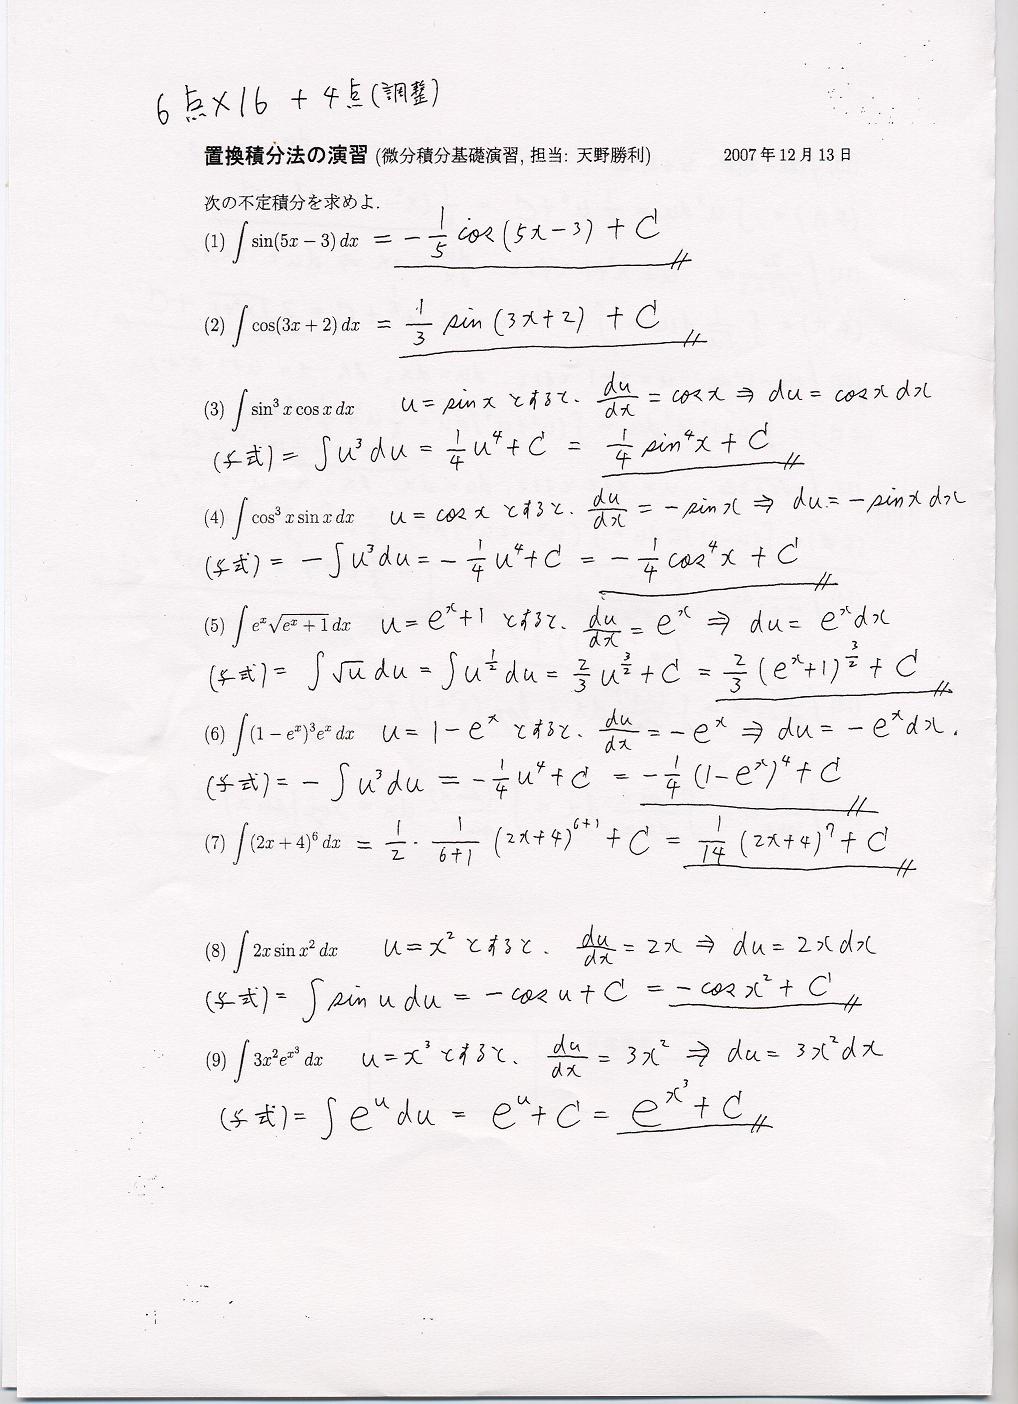 6点×16 + 4点(調整)
置換積分法の演習 (微分積分基礎演習, 担当: 天野勝利) 2007年12月13日
次の不定積分を求めよ.
(1) ∫ sin(5x − 3) dx = −1/5 cos(5x−3) + C
(2) ∫ cos(3x + 2) dx = 1/3 sin(3x+2) + C
(3) ∫ sin³ x cos x dx u = sin x とすると、 du/dx = cos x ⇒ du = cos x dx
(与式) = ∫ u³ du = 1/4 u⁴ + C = 1/4 sin⁴x + C
(4) ∫ cos³ x sin x dx u = cos x とすると、 du/dx = −sin x ⇒ du = −sin x dx
(与式) = −∫ u³ du = −1/4 u⁴ + C = −1/4 cos⁴x + C
(5) ∫ eˣ√(eˣ + 1) dx u = eˣ+1 とすると、 du/dx = eˣ ⇒ du = eˣ dx
(与式) = ∫ √u du = ∫ u^(1/2) du = 2/3 u^(3/2) + C = 2/3 (eˣ+1)^(3/2) + C
(6) ∫ (1 − eˣ)³eˣ dx u = 1−eˣ とすると、 du/dx = −eˣ ⇒ du = −eˣ dx.
(与式) = −∫ u³ du = −1/4 u⁴ + C = −1/4 (1−eˣ)⁴ + C
(7) ∫ (2x + 4)⁶ dx = 1/2 · 1/(6+1) (2x+4)^(6+1) + C = 1/14 (2x+4)⁷ + C
(8) ∫ 2x sin x² dx u = x² とすると、 du/dx = 2x ⇒ du = 2x dx
(与式) = ∫ sin u du = −cos u + C = −cos x² + C
(9) ∫ 3x²e^(x³) dx u = x³ とすると、 du/dx = 3x² ⇒ du = 3x² dx
(与式) = ∫ eᵘ du = eᵘ + C = e^(x³) + C